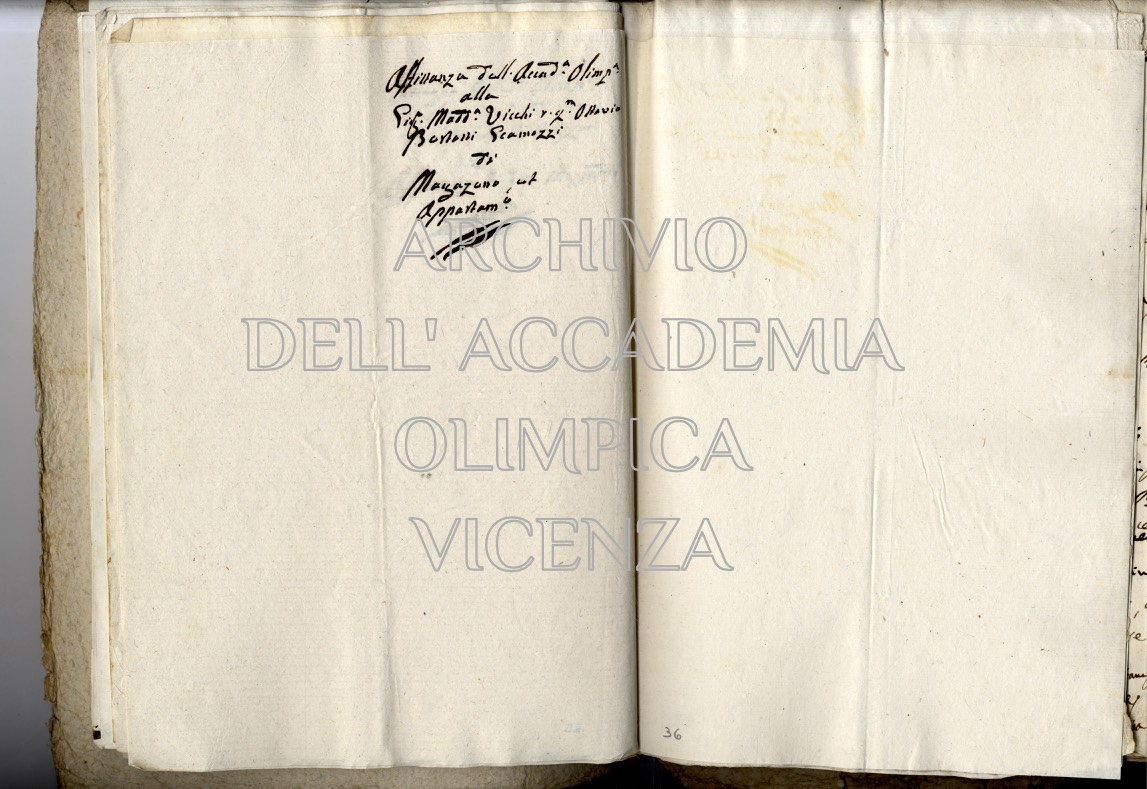 Affittanza dell'Accad.ª Olimp.ª
alla
Sig.ª Madd.ª Vicchi r. q.m Ottavio
Bertotti Scamozzi
di
Magazeno, et
Appartam.º
ARCHIVIO
DELL' ACCADEMIA
OLIMPICA
VICENZA
36